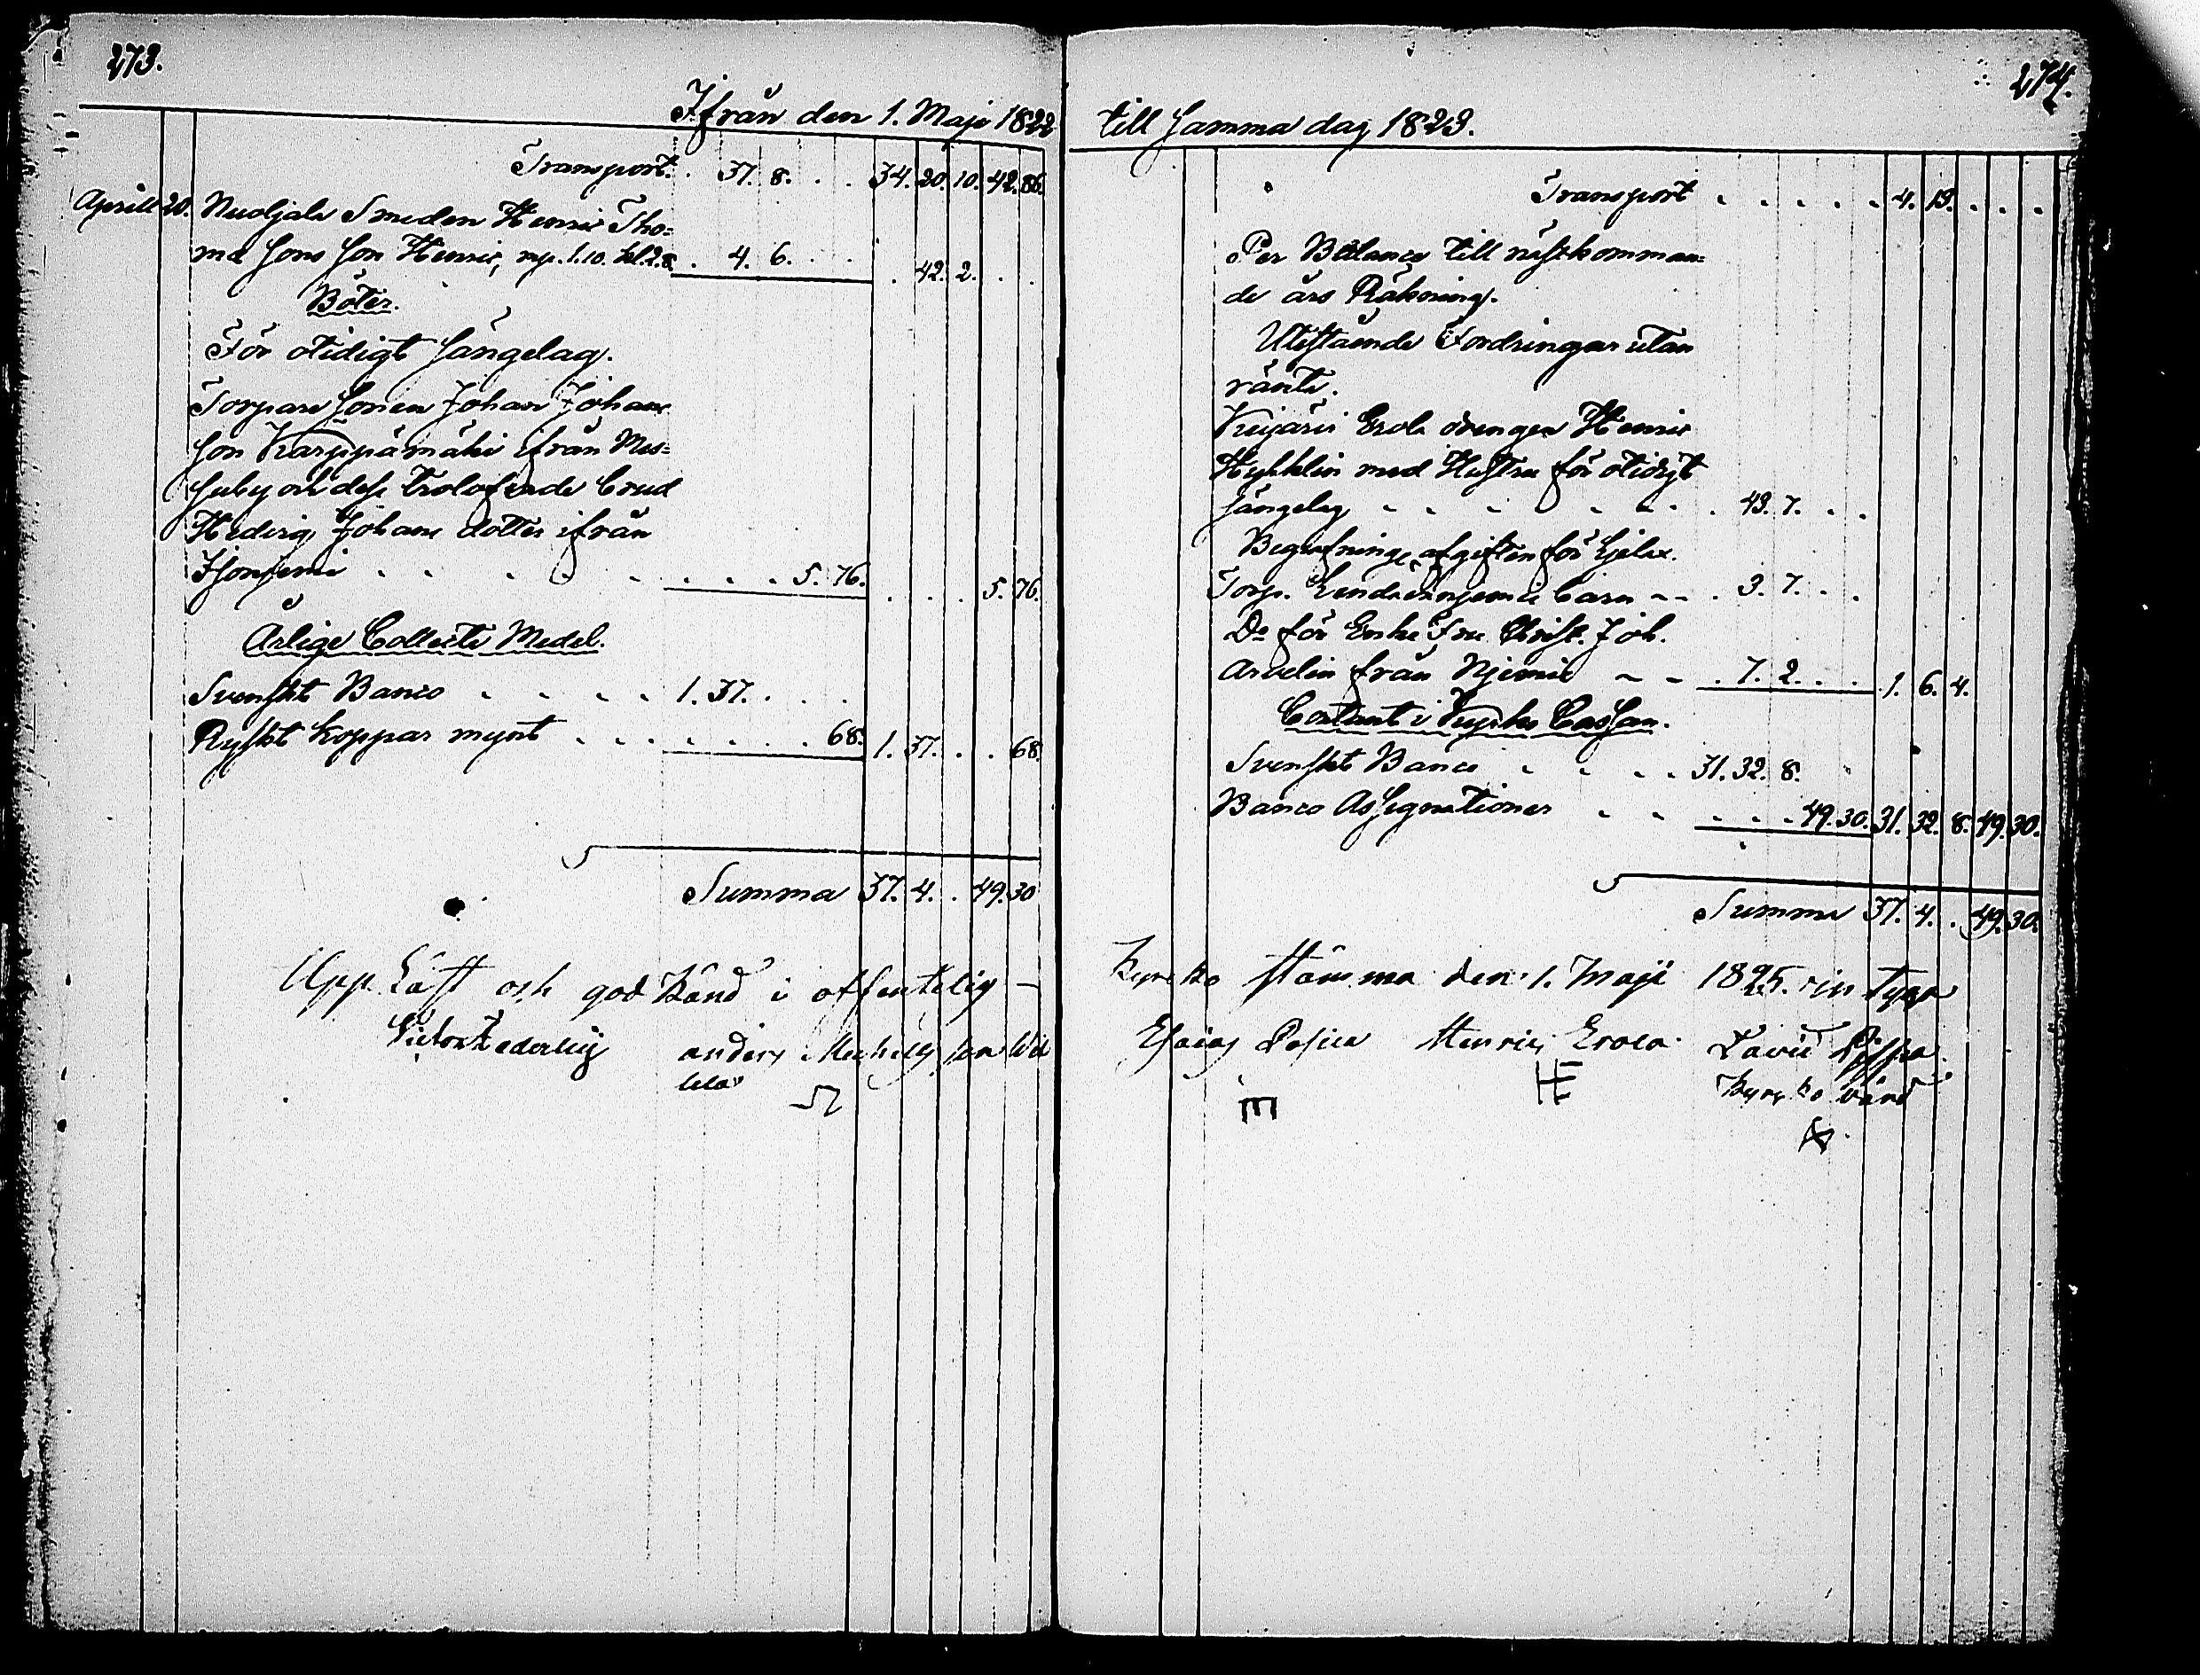 273.
Ifrån den 1. Maji 1822
Transport. . 37. 8. . . 34. 20. 10. 42. 86.
Aprill 20. Nuoljala Smeden Henric Tho=
ma Sons Son Henric, mp. 1.10. kl. 2.8. . 4. 6. . . . 42. 2. . .
Böter.
För otidigt Sängelag.
Torpare Sonen Johan Johans
Son Karjupämäki ifrån Mes=
suby och dess trolofvade brud
Hedvig Johans dotter ifrån
. . . . . . . . . 5. 76. . . . 5. 76.
Årlige Collecte Medel.
Svenskt Banco . . . . 1. 37. . . .
Ryskt koppar mynt . . . . . . . 68. 1. 37. . . 68.
Summa 37. 4. . 49. 30
Upp Läst och god Känd i offentelig
anders
274.
till Samma dag 1823.
Transport . . . . . 4. 13. . . .
Per Balance till nästkomman=
de års Räkning.
Utestående Fordringar utan
ränta.
Erola drengen Henric
Hykklin med Hustru för otidigt
Sängelag . . . . . . 43. 7. . .
Begrafnings afgiften för
Torp. barn -- . 3. 7. . .
Do för Enke Fru Christ. Joh.
Arvelin från Njemis - - . 7. 2. . . 1. 6. 4.
Contant i Kyrko Cassan.
Svenskt Banco . . . . 31. 32. 8.
Banco Assignationer . . . . . 49. 30. 31. 32. 8. 49. 30.
Summa 37. 4. . 49. 30.
Kyrko stämma den 1. Maji 1825.
Esaias Henric Erola
Kyrko värd
HE